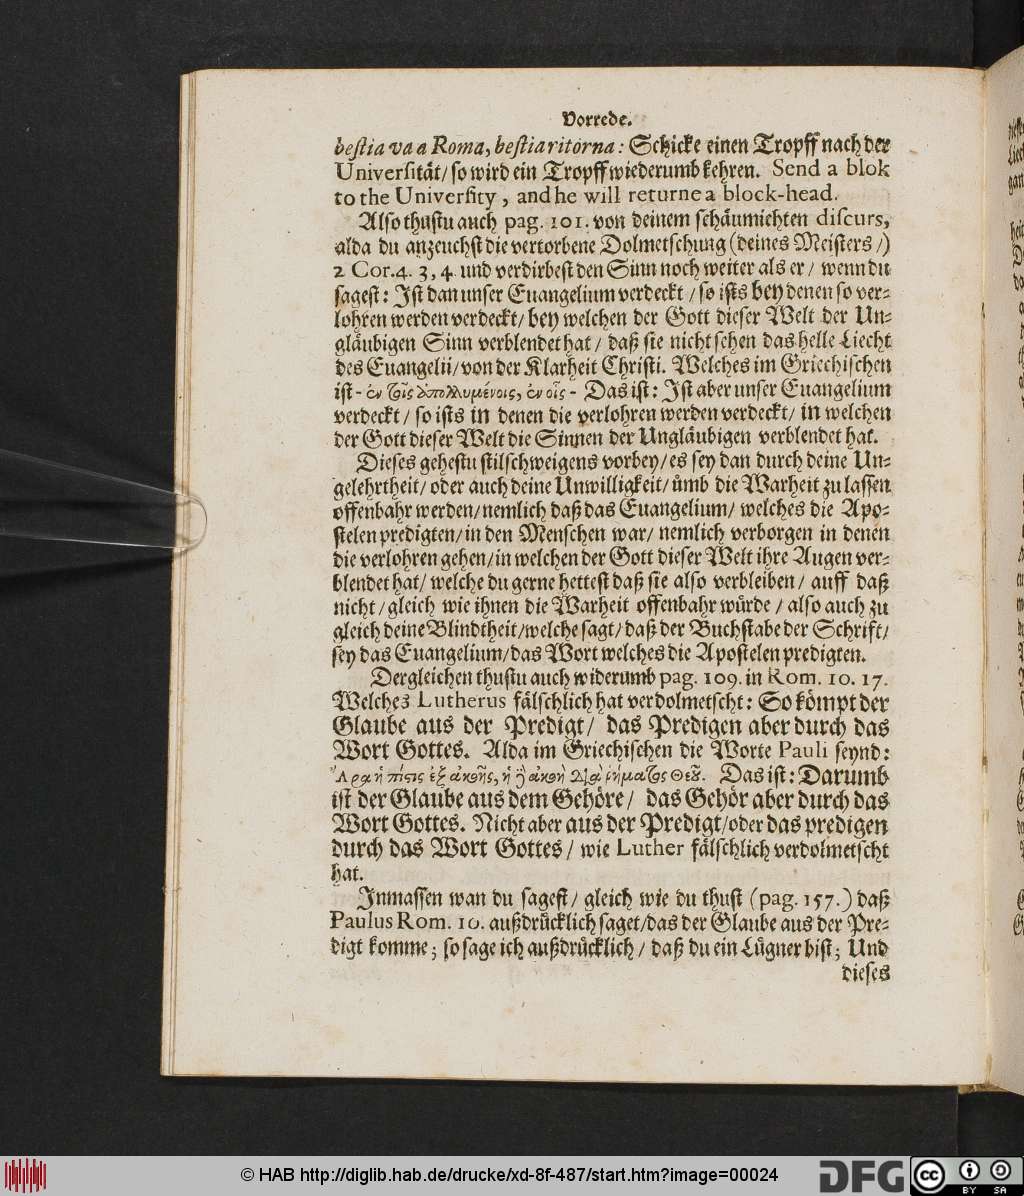 Vorrede.
beſtia va a Roma, beſtia ritorna: Schicke einen Tropff nach der
Univerſität/ ſo wird ein Tropff wiederumb kehren. Send a blok
to the Univerſity, and he will returne a block-head.
Alſo thuſtu auch pag. 101. von deinem ſchäumichten diſcurs,
alda du anzeuchſt die vertorbene Dolmetſchung (deines Meiſters/)
2 Cor. 4. 3, 4. und verdirbeſt den Sinn noch weiter als er/ wenn du
ſageſt: Iſt dan unſer Euangelium verdeckt/ ſo iſts bey denen ſo ver-
lohren werden verdeckt/ bey welchen der Gott dieſer Welt der Un-
gläubigen Sinn verblendet hat/ daß ſie nicht ſehen das helle Liecht
des Euangelii/ von der Klarheit Chriſti. Welches im Griechiſchen
iſt - ἐν τοῖς ἀπολλυμένοις, ἐν οἷς - Das iſt: Iſt aber unſer Euangelium
verdeckt/ ſo iſts in denen die verlohren werden verdeckt/ in welchen
der Gott dieſer Welt die Sinnen der Ungläubigen verblendet hat.
Dieſes geheſtu ſtilſchweigens vorbey/ es ſey dan durch deine Un-
gelehrtheit/ oder auch deine Unwilligkeit/ ümb die Warheit zu laſſen
offenbahr werden/ nemlich daß das Euangelium/ welches die Apo-
ſtelen predigten/ in den Menſchen war/ nemlich verborgen in denen
die verlohren gehen/ in welchen der Gott dieſer Welt ihre Augen ver-
blendet hat/ welche du gerne hetteſt daß ſie alſo verbleiben/ auff daß
nicht/ gleich wie ihnen die Warheit offenbahr würde/ alſo auch zu
gleich deine Blindtheit/ welche ſagt/ daß der Buchſtabe der Schrift/
ſey das Euangelium/ das Wort welches die Apoſtelen predigten.
Dergleichen thuſtu auch widerumb pag. 109. in Rom. 10. 17.
Welches Lutherus fälſchlich hat verdolmetſcht: So kömpt der
Glaube aus der Predigt/ das Predigen aber durch das
Wort Gottes. Alda im Griechiſchen die Worte Pauli ſeynd:
Ἄρα ἡ πίστις ἐξ ἀκοῆς, ἡ δὲ ἀκοὴ διὰ ῥήματος Θεοῦ. Das iſt: Darumb
iſt der Glaube aus dem Gehöre/ das Gehör aber durch das
Wort Gottes. Nicht aber aus der Predigt/ oder das predigen
durch das Wort Gottes/ wie Luther fälſchlich verdolmetſcht
hat.
Inmaſſen wan du ſageſt/ gleich wie du thuſt (pag. 157.) daß
Paulus Rom. 10. außdrücklich ſaget/ das der Glaube aus der Pre-
digt komme; ſo ſage ich außdrücklich/ daß du ein Lügner biſt; Und
dieſes
© HAB http://diglib.hab.de/drucke/xd-8f-487/start.htm?image=00024
DFG
cc BY SA